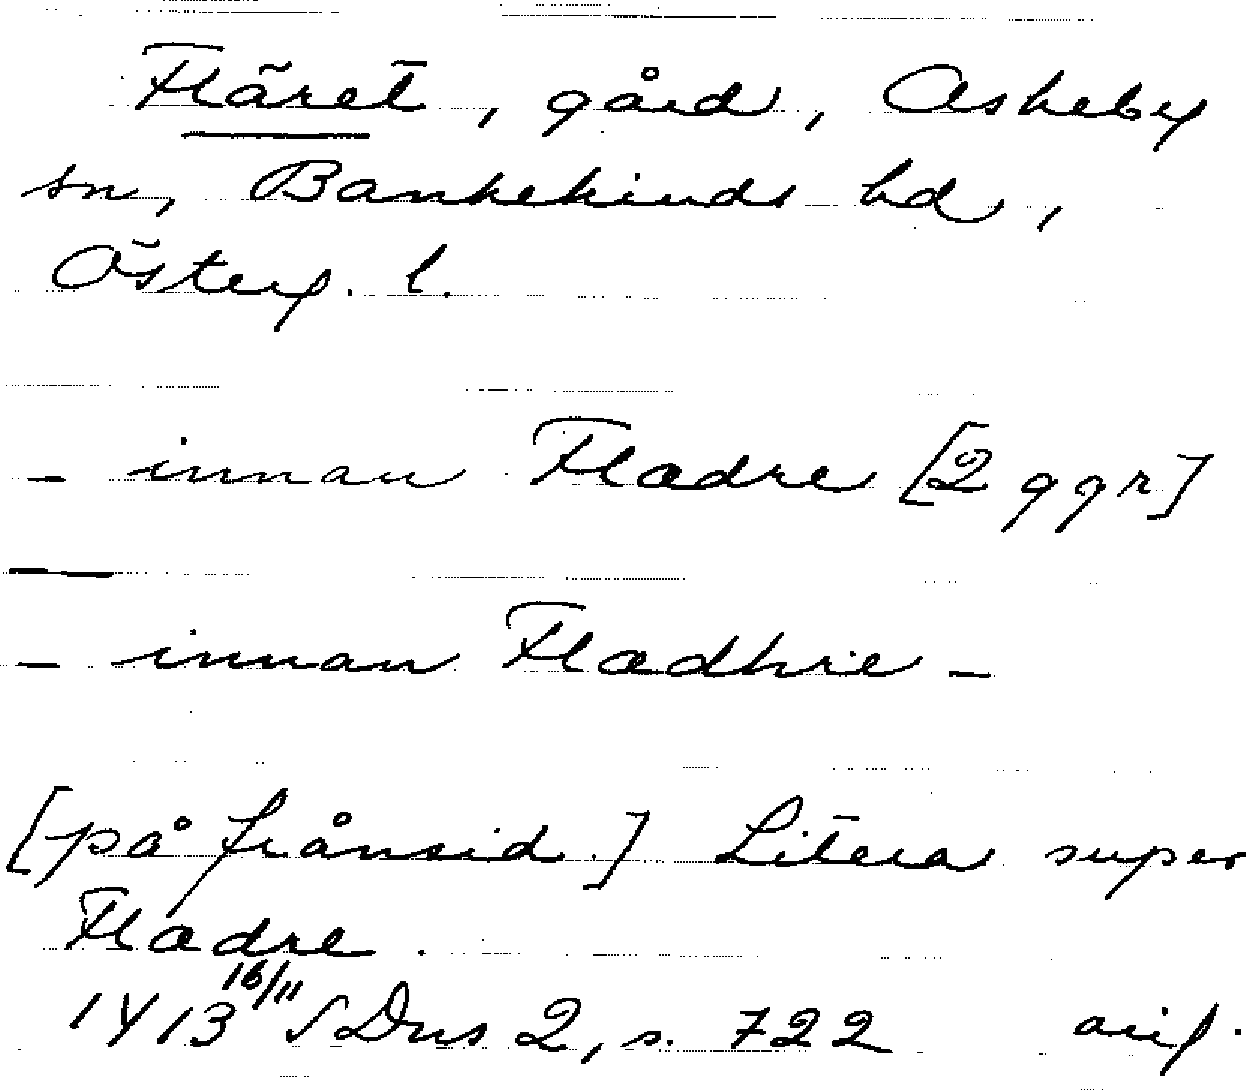 Fläret, gård, Askeby
sn, Bankekinds hd,
Österg. l.
- innan Flædre [2 ggr]
- innan Flædhre -
[på frånsid.] Litera super
Flædre.
1413 16/11 SDns 2, s. 722 orig.